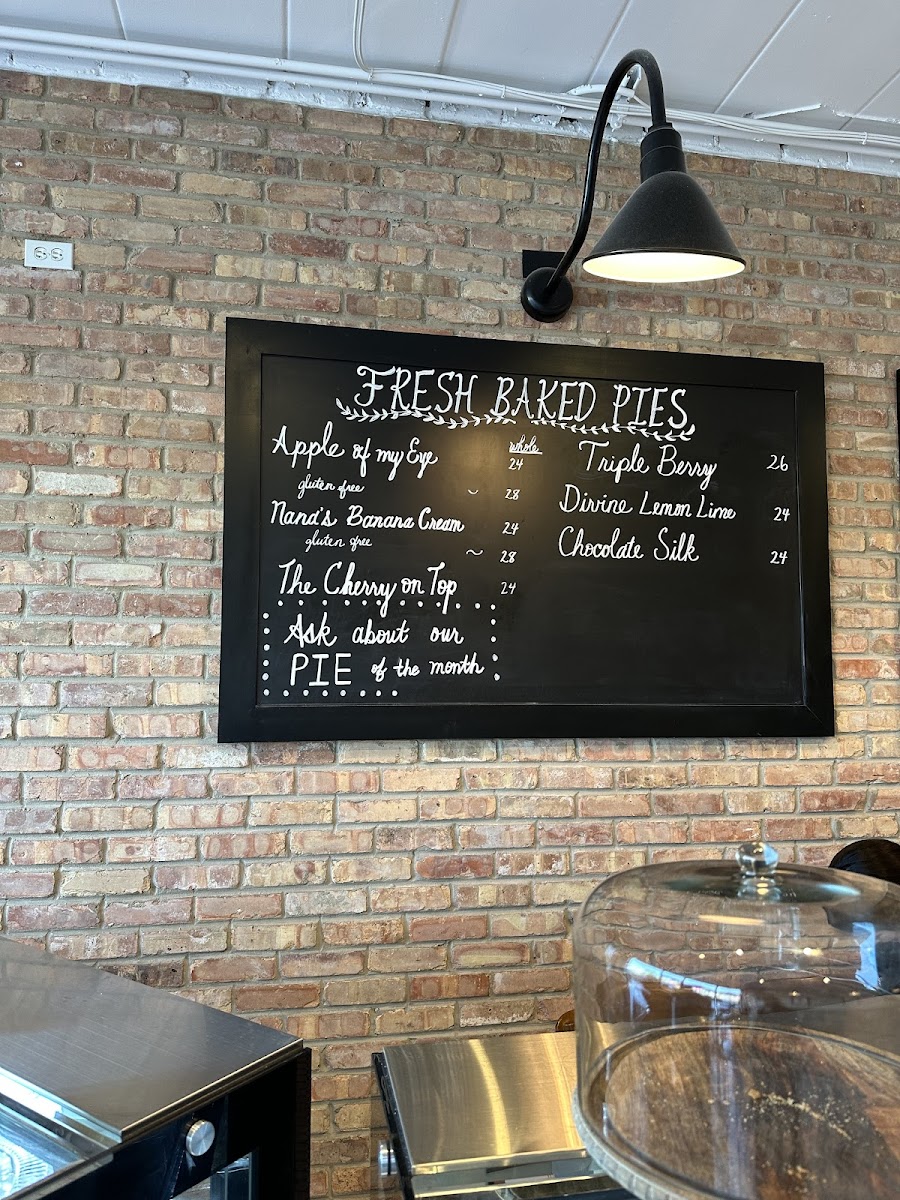 FRESH BAKED PIES
whole
Apple of my Eye 24
gluten free ~ 28
Nana's Banana Cream 24
gluten free ~ 28
The Cherry on Top 24
Ask about our
PIE of the month
Triple Berry 26
Divine Lemon Lime 24
Chocolate Silk 24